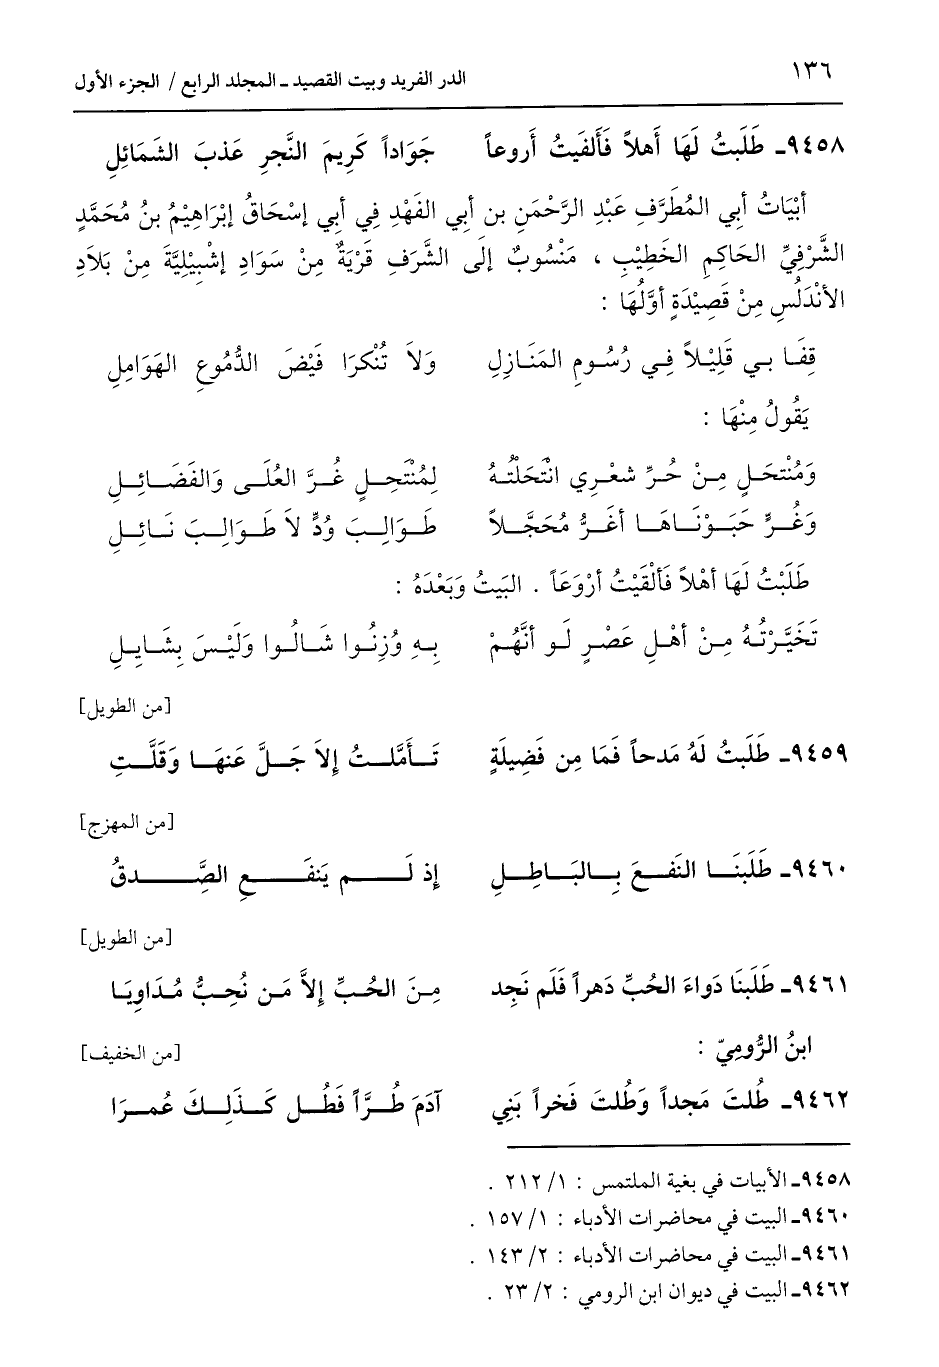 ١٣٦ الدر الفريد وبيت القصيد ـ المجلد الرابع / الجزء الأول
٩٤٥٨ـ طَلَبتُ لَهَا أَهلاً فَأَلفَيتُ أَروعاً جَوَاداً كَرِيمَ النَّجرِ عَذبَ الشَمَائِلِ
أبْيَاتُ أبي المُطَرَّفِ عَبْدِ الرَّحْمَنِ بن أبي الفَهْدِ فِي أبي إسْحَاقُ إبْرَاهِيْمُ بنُ مُحَمَّدٍ
الشَّرْفِيِّ الحَاكِمِ الخَطِيْبِ ، مَنْسُوبٌ إلَى الشَّرَفِ قَرْيَةٌ مِنْ سَوَادِ إشْبِيْلِيَّةَ مِنْ بَلاَدِ
الأنْدَلُسِ مِنْ قَصِيْدَةٍ أوَّلُهَا :
قِفَا بي قَلِيْلاً فِي رُسُومِ المَنَازِلِ وَلاَ تُنْكرَا فَيْضَ الدُّمُوعِ الهَوَامِلِ
يَقُولُ مِنْهَا :
وَمُنْتَحَلٍ مِنْ حُرِّ شعْرِي انْتَحَلْتُهُ لِمُنْتَحِلٍ غُرَّ العُلَى وَالفَضَائِلِ
وَغُرٍّ حَبَوْنَاهَا أغَرُّ مُحَجَّلاً طَوَالِبَ وُدٍّ لاَ طَوَالِبَ نَائِلِ
طَلَبْتُ لَهَا أهْلاً فَألْقَيْتُ أرْوَعَاً . البَيتُ وَبَعْدَهُ :
تَخَيَّرْتُهُ مِنْ أهْلِ عَصْرٍ لَو أنَّهُمْ بِهِ وُزِنُوا شَالُوا وَلَيْسَ بِشَايِلِ
[من الطويل]
٩٤٥٩ـ طَلَبتُ لَهُ مَدحاً فَمَا مِن فَضِيلَةٍ تَأَمَّلتُ إلاَ جَلَّ عَنهَا وَقَلَّتِ
[من المهزج]
٩٤٦٠ـ طَلَبنَا النَفعَ بِالبَاطِلِ إذ لَم يَنفَعِ الصِّدقُ
[من الطويل]
٩٤٦١ـ طَلَبنَا دَواءَ الحُبِّ دَهراً فَلَم نَجِد مِنَ الحُبِّ إلاَّ مَن نُحِبُّ مُدَاوِيَا
ابنُ الرُّومِيّ :
[من الخفيف]
٩٤٦٢ـ طُلتَ مَجداً وَطُلتَ فَخراً بَنِي آدَمَ طُرَّاً فَطُل كَذَلِكَ عُمرَا
٩٤٥٨ـ الأبيات في بغية الملتمس : ١/ ٢١٢ .
٩٤٦٠ـ البيت في محاضرات الأدباء : ١/ ١٥٧ .
٩٤٦١ـ البيت في محاضرات الأدباء : ٢/ ١٤٣ .
٩٤٦٢ـ البيت في ديوان ابن الرومي : ٢/ ٢٣ .